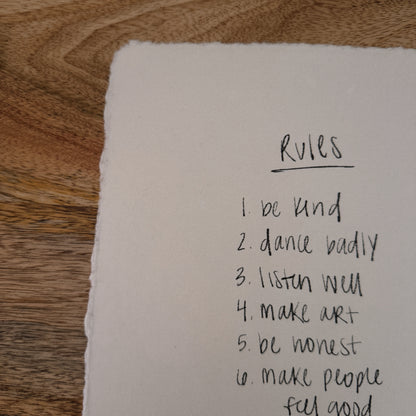 Rules
1. be kind
2. dance badly
3. listen well
4. make art
5. be honest
6. make people
feel good